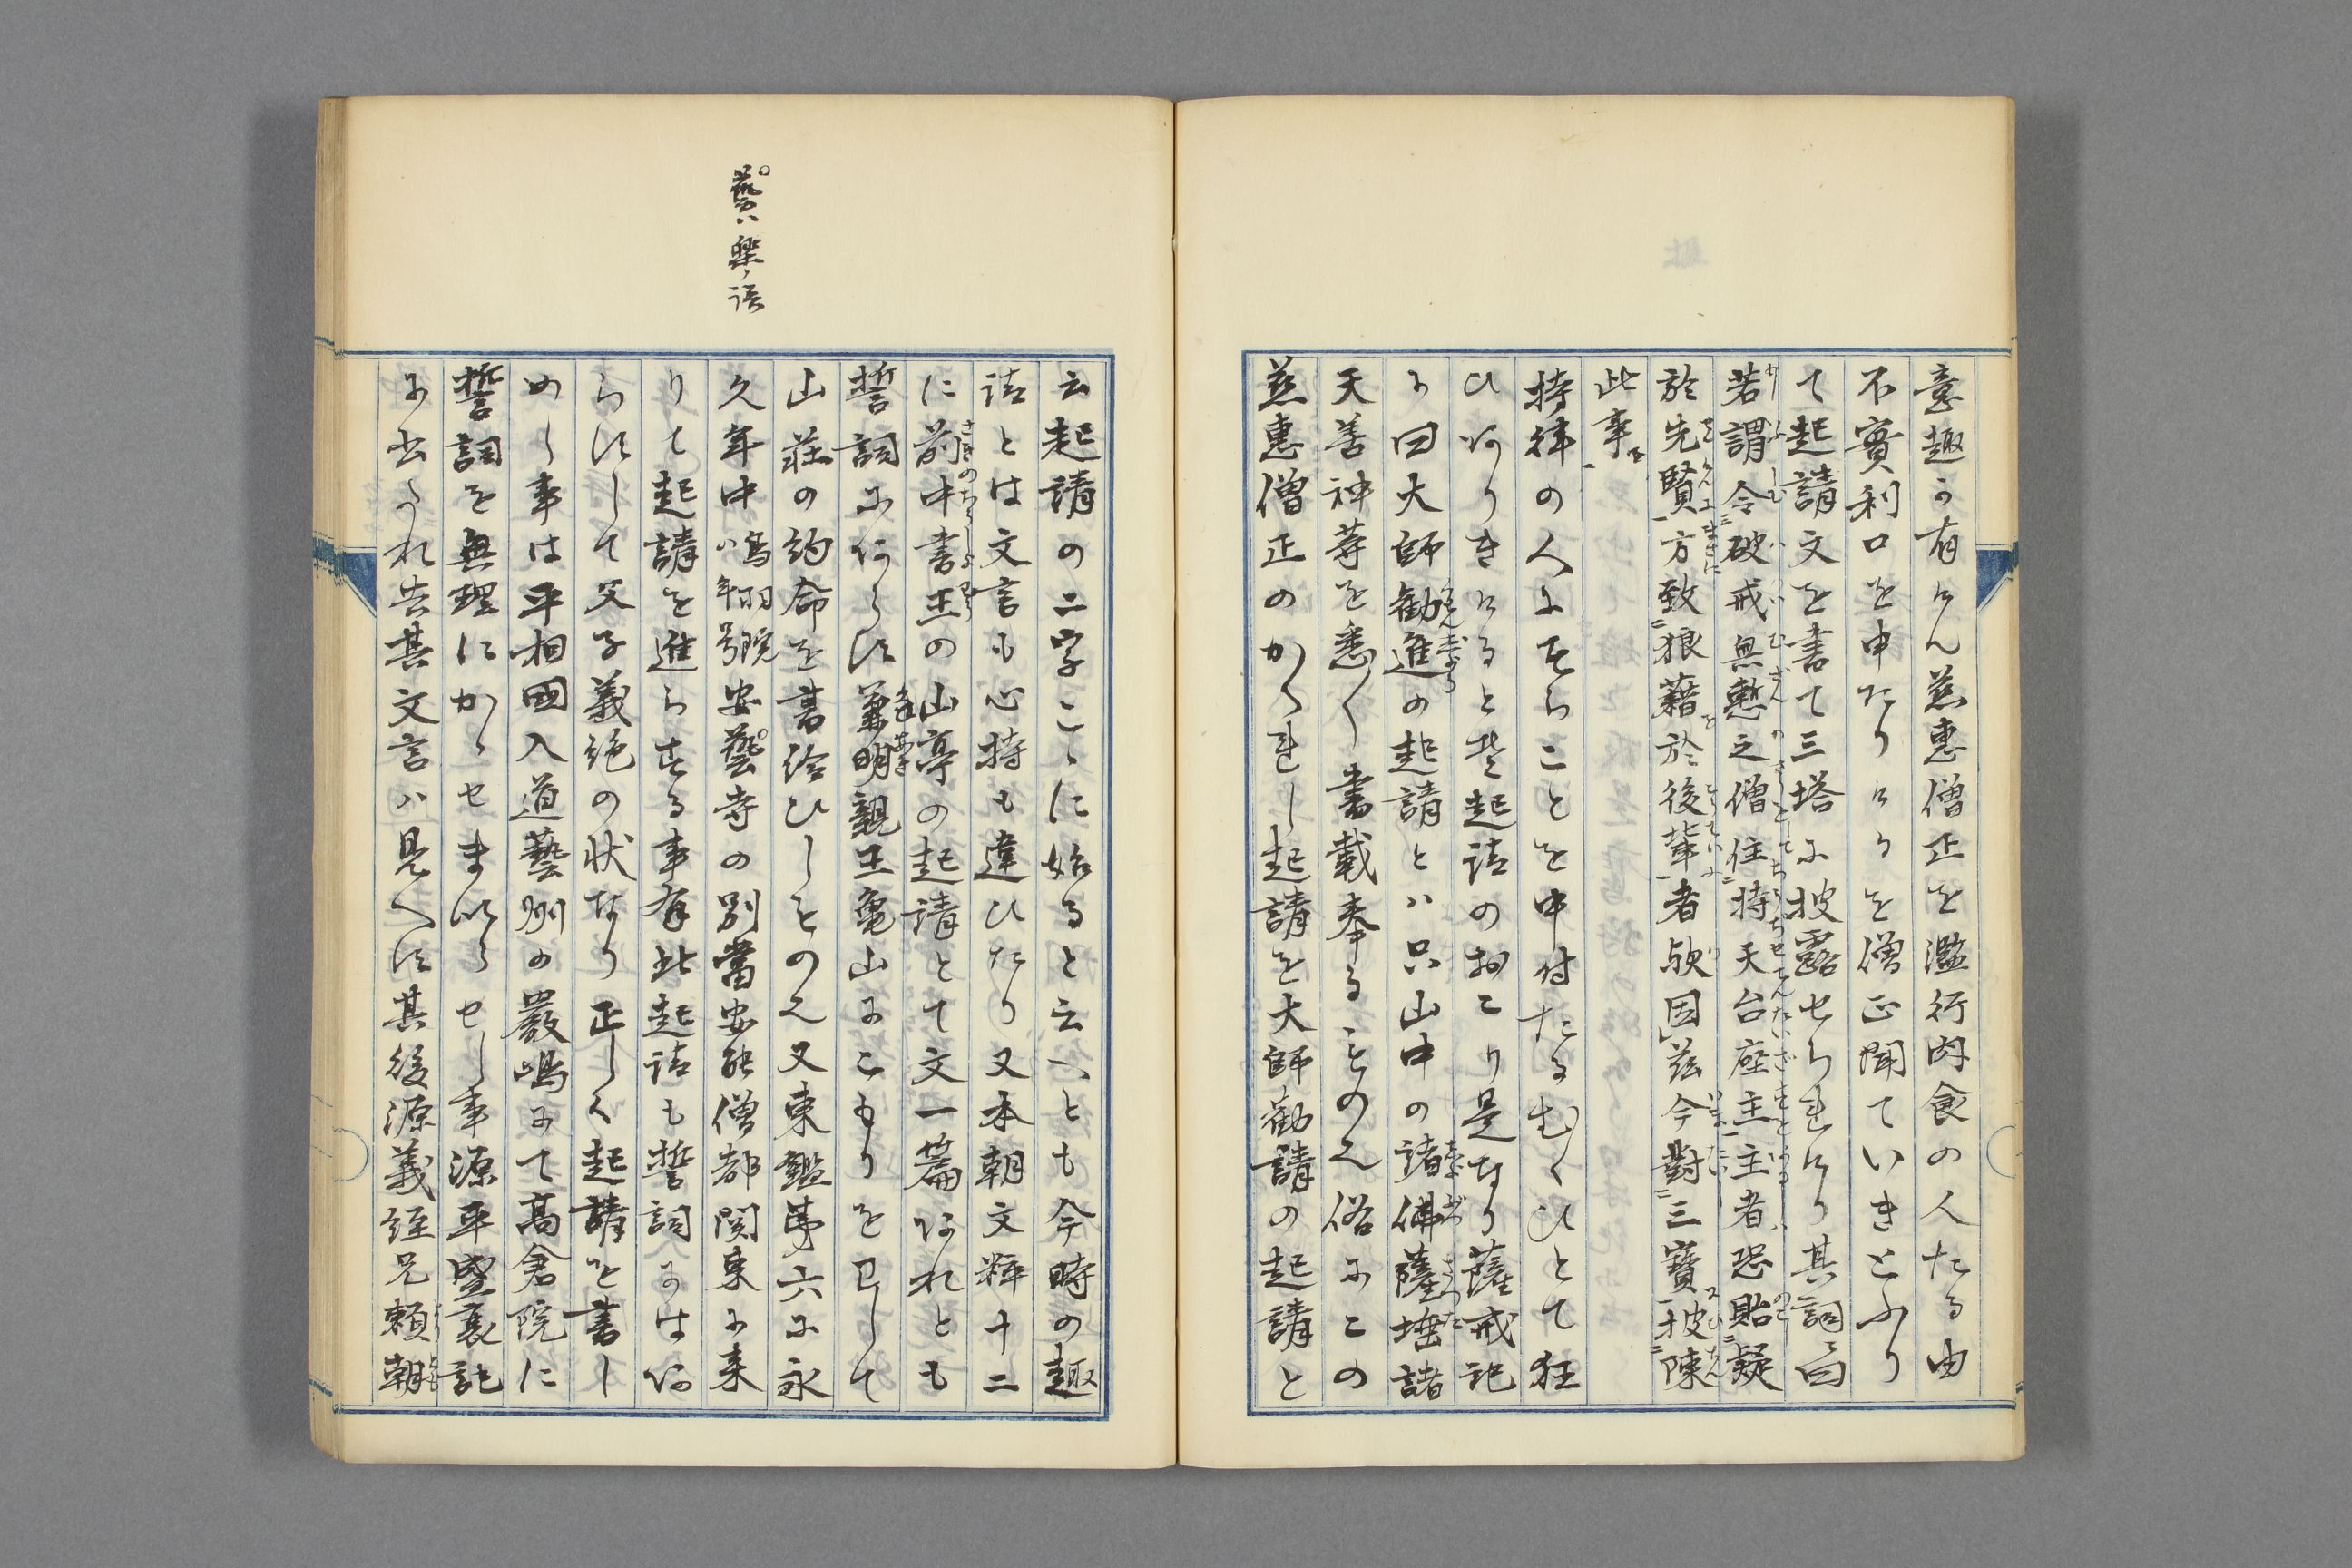 意趣か有けん慈惠僧正を濫行肉食の人たる由
不實利口を申たりけるを僧正聞ていきとふり
て起請文を書て三塔に披露せられけり其詞曰
若謂令破戒無慙之僧住持天台座主主者恐貽疑
於先賢方致狼藉於後輩者歟因茲今對三寶披陳
此事
持律の人にそらことを申付たるむくひとて狂
ひありきけると是起請のおこり是なり薩戒記
に曰大師勧進の起請とハ只山中の諸佛薩埵諸
天善神等を悉く書載奉るものえ俗にこの
慈惠僧正のかゝれし起請を大師勧請の起請と
云起請の二字こゝに始ると云へとも今時の趣
請とは文言も心持も違ひたり又本朝文粹十二
に前中書王の山亭の起請とて文一篇あれとも
誓詞にあらす兼明親王亀山にこもりを卩して
山莊の約命を書給ひしものえ又東鑑第六に永
久年中鳥羽院ハ年号安藝寺の別當安能僧都関東に来
りて起請を進らする事有此起請も誓詞にはあ
らすして父子義絶の状なり正しく起請を書し
めし事は平相國入道藝州の嚴嶋にて高倉院に
誓詞を無理にかゝせまいらせし事源平盛衰記
に出たれ共其文言ハ見へす其後源義經兄頼朝
藝ハ樂ノ誤